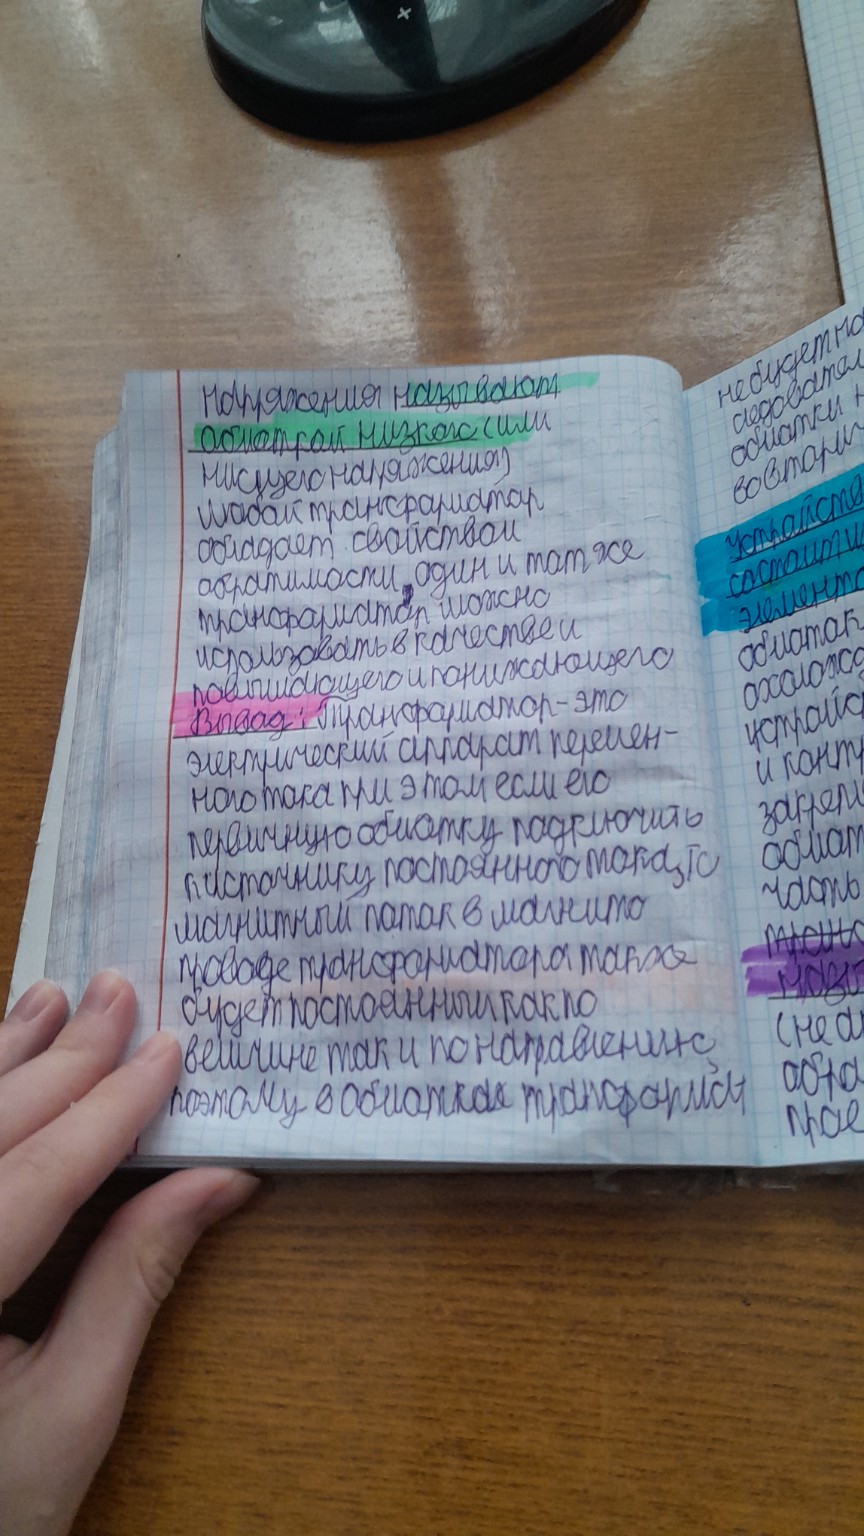 напряжения называют
обмоткой низкого (или
низшего напряжения)
любой трансформатор
обладает свойством
обратимости, один и тот же
трансформатор можно
использовать в качестве и
повышающего и понижающего
Вывод: Трансформатор-это
электрический аппарат перемен-
ного тока при этом если его
первичную обмотку подключить
к источнику постоянного тока, то
магнитный поток в магнито
проводе трансформатора также
будет постоянным как по
величине так и по направлению
поэтому в обмотках
не будет
обмотки
во вторич
устройства
состоит из
элементов
обмоток
охлажд
устройс
и конт
закреп
обмот
часть
транс
назы
(не а
обра
прое